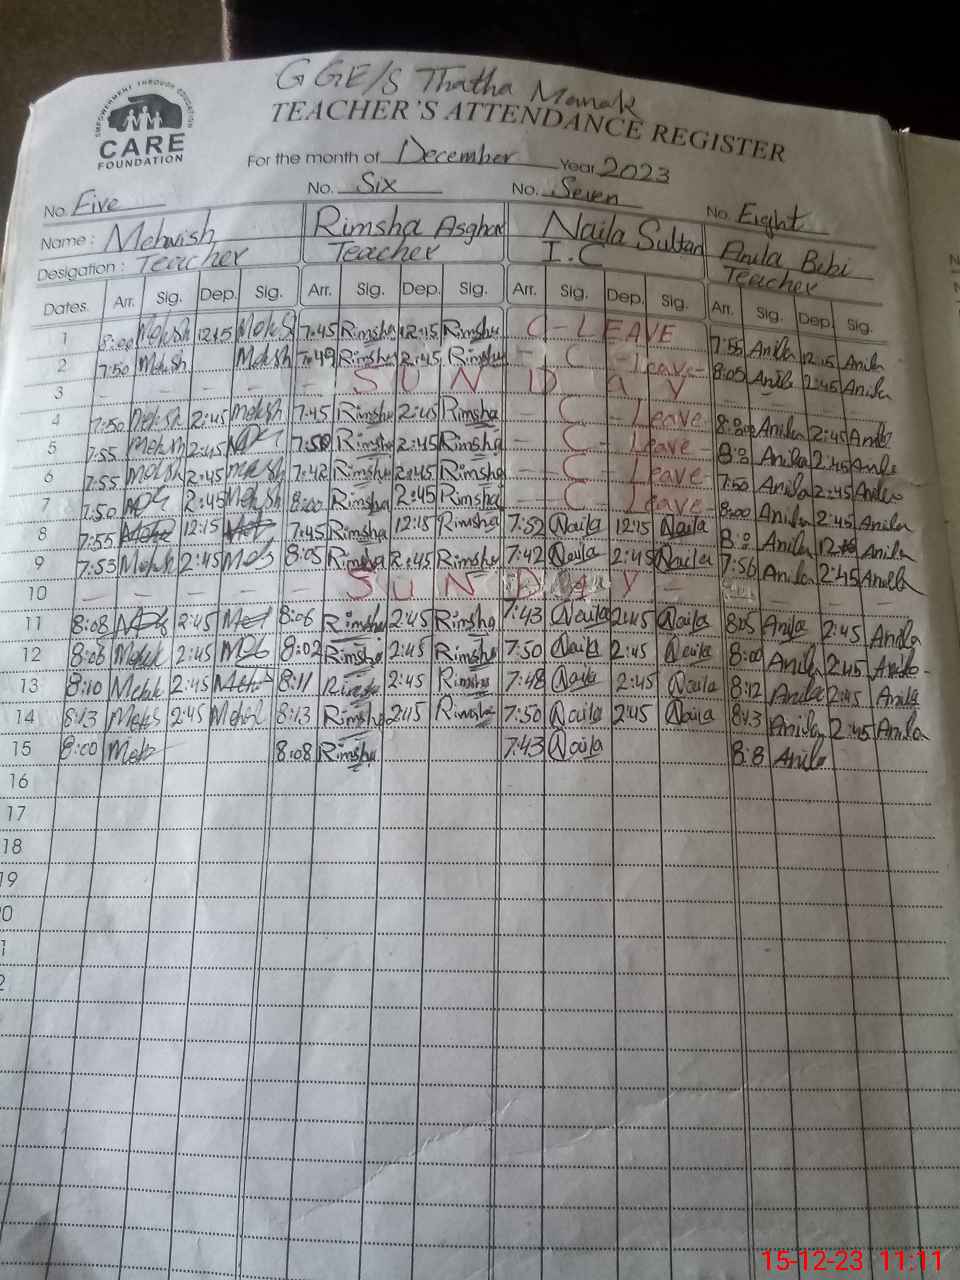 GGE/S Thatha Manak
EMPOWERMENT THROUGH EDUCATION
CARE
FOUNDATION
TEACHER'S ATTENDANCE REGISTER
For the month of December Year 2023
No. Five No. Six No. Seven No. Eight
Name : Mehwish Rimsha Asghar Naila Sultan Anila Bibi
Desigation : Teacher Teacher I.C Teacher
Dates. Arr. Sig. Dep. Sig. Arr. Sig. Dep. Sig. Arr. Sig. Dep. Sig. Arr. Sig. Dep. Sig.
1 8:00 12:15 7:45 Rimsha 12:15 Rimsha C-LEAVE 7:55 Anila 12:15 Anila
2 7:50 7:49 Rimsha 2:45 Rimsha - C - Leave - 8:05 Anila 2:45 Anila
3 - - - - - SUNDAY - - - -
4 7:50 2:45 7:45 Rimsha 2:45 Rimsha - C - Leave - Anila 2:45 Anila
5 7:55 2:45 7:50 Rimsha 2:45 Rimsha - C - Leave - 8:8 Anila 2:45 Anila
6 7:55 2:45 7:42 Rimsha 2:45 Rimsha - C - Leave - 7:50 Anila 2:45 Anila
7 7:50 2:45 8:00 Rimsha 2:45 Rimsha - C - Leave - 8:00 Anila 2:45 Anila
8 7:55 12:15 7:45 Rimsha 12:15 Rimsha 7:52 Naila 12:15 Naila 8:8 Anila Anila
9 7:53 2:45 8:05 Rimsha 2:45 Rimsha 7:42 Naila 2:45 Naila 7:56 Anila 2:45 Anila
10 - - - - - SUNDAY - - - -
11 8:08 2:45 8:06 Rimsha 2:45 Rimsha 7:43 Naila 2:45 Naila 8:05 Anila 2:45 Anila
12 8:06 2:45 8:02 Rimsha 2:45 Rimsha 7:50 Naila 2:45 Naila 8:00 Anila 2:45 Anila
13 8:10 2:45 8:11 Rimsha 2:45 Rimsha 7:48 Naila 2:45 Naila 8:12 Anila 2:45 Anila
14 8:13 2:45 8:13 Rimsha Rimsha 7:50 Naila 2:45 Naila 8:13 Anila 2:45 Anila
15 8:00 8:08 Rimsha 7:43 Naila 8:8 Anila
16
17
18
19
0
1
2
15-12-23 11:11